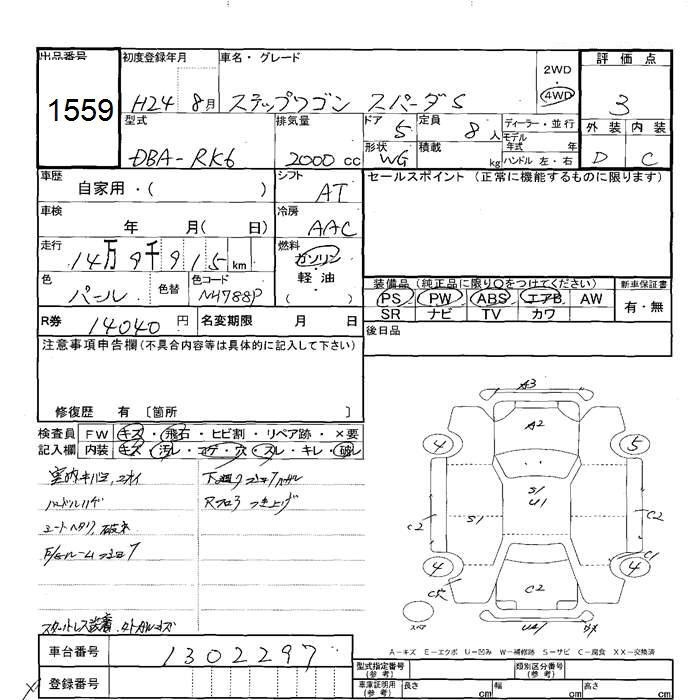 出品番号 初度登録年月 車名・グレード 評価点
1559 H24 8月 ステップワゴン スパーダS 2WD 4WD 3
型式 排気量 ドア 5 定員 8人 ディーラー・並行 外装 内装
DBA-RK6 2000cc 形状 WG 積載 kg モデル年式 年 ハンドル 左・右 D C
車歴 自家用・( ) シフト AT セールスポイント (正常に機能するものに限ります)
車検 年 月( 日) 冷房 AAC
走行 14万9千915km 燃料 ガソリン 軽油 ( )
色 パール 色替 色コード NH788P
装備品 (純正品に限り○をつけてください) 新車保証書
PS PW ABS エアB AW 有・無
SR ナビ TV カワ
R券 14040円 名変期限 月 日 後日品
注意事項申告欄(不具合内容等は具体的に記入して下さい)
修復歴 有 〔箇所 〕
検査員 FW キズ・飛石・ヒビ割・リペア跡・×要
記入欄 内装 キズ・汚レ・コゲ・穴・スレ・キレ・破レ
ハンドルハゲ
A3
A2
4 5
S/
U1
S1
C2 C2
4 4
C1
C2
スペア
A-キズ E-エクボ U-凹み W-補修跡 S-サビ C-腐食 XX-交換済
車台番号 1302297
登録番号
型式指定番号(参考) 類別区分番号(参考)
車庫証明用(参考) 長さ cm 幅 cm 高さ cm